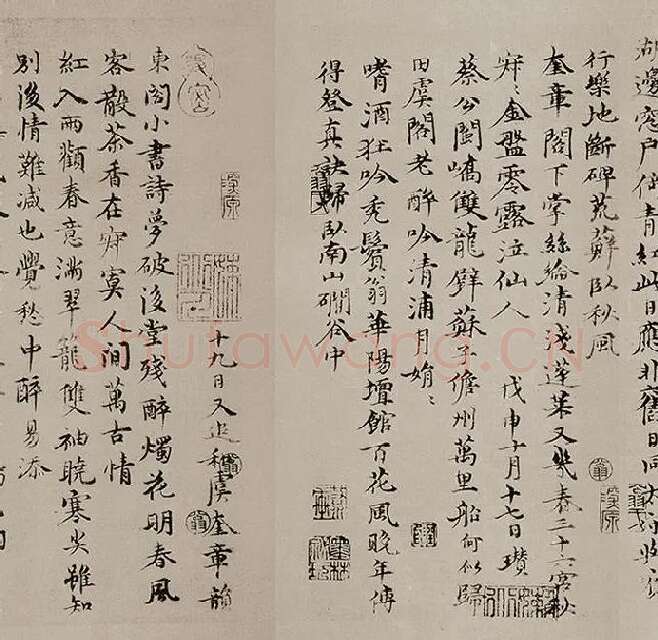 湖邊窓戶倚青紅此日應非舊日同太守
行樂地斷碑荒蘚臥秋風
奎章閣下掌絲綸清淺蓬萊又幾春三十六宮秋
寂〻金盤零露泣仙人 戊申十月十七日瓚
蔡公閩嶠雙龍璧蘇子儋州萬里船何似歸
田虞閣老醉吟清浦月娟〻
嗜酒狂吟禿鬢翁華陽壇館百花風晚年傳
得登真訣歸臥南山磵谷中
十九日又追和虞奎章韻
東閣小書詩夢破後堂殘醉燭花明春風
客散茶香在寂寞人間萬古情
紅入兩顴春意漸翠籠雙袖曉寒尖雖知
別後情難減也覺愁中醉易添
Shufawang.CN